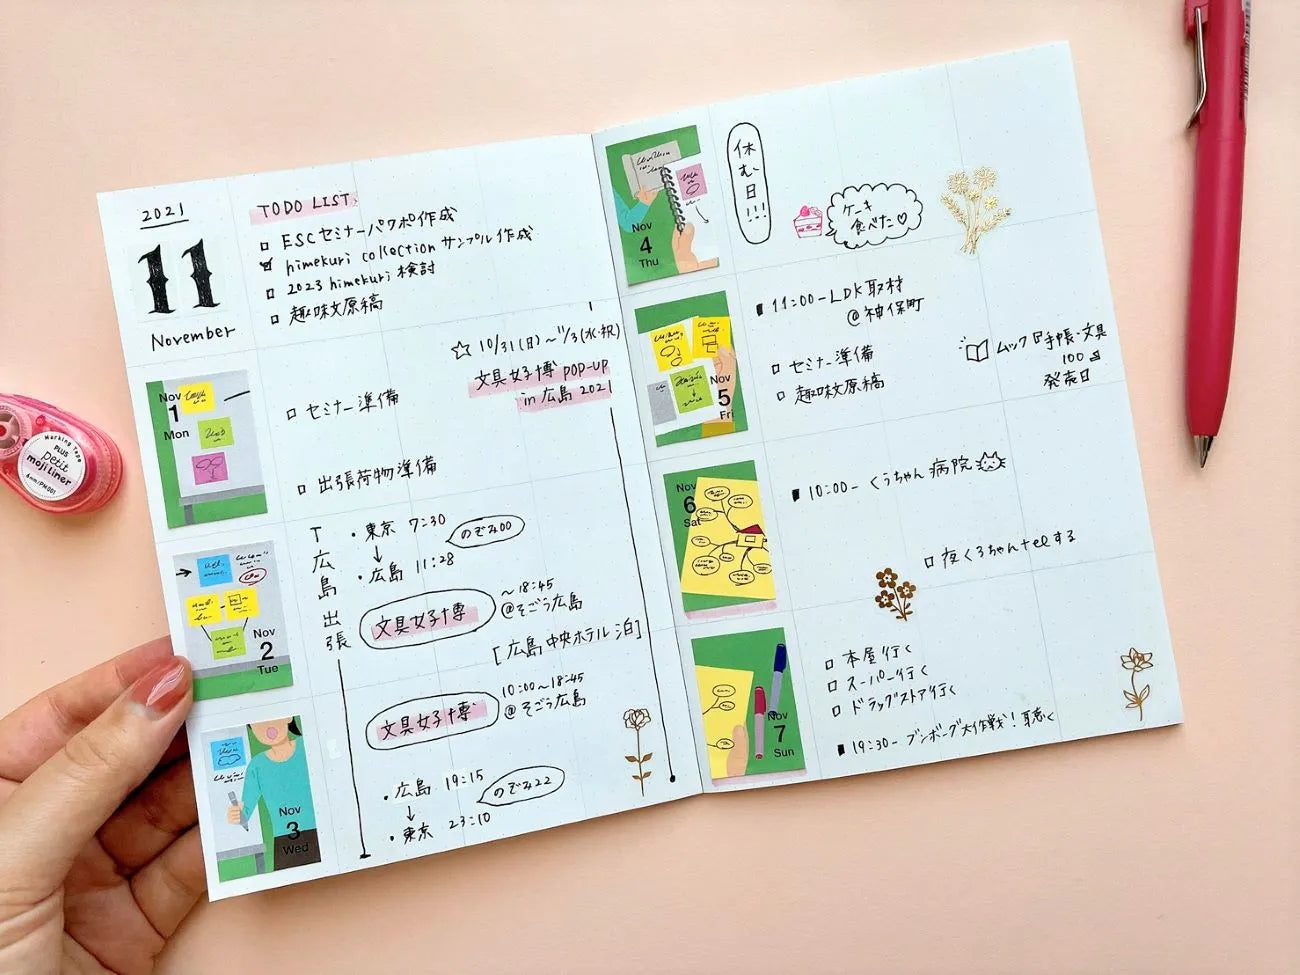 2021
11
November
TODO LIST
□ ESCセミナーパワポ作成
☑ himekuri collection サンプル作成
□ 2023 himekuri 検討
□ 趣味文原稿
☆ 10/31(日)~11/3(水・祝)
文具女子博 POP-UP
in 広島 2021
Nov
1
Mon
□ セミナー準備
□ 出張荷物準備
Nov
2
Tue
広島出張
・東京 7:30
↓
・広島 11:28
のぞみ00
文具女子博
~18:45
@そごう広島
[広島中央ホテル泊]
Nov
3
Wed
文具女子博
10:00~18:45
@そごう広島
・広島 19:15
↓
・東京 23:10
のぞみ22
Nov
4
Thu
休む日!!!
ケーキ
食べた♡
Nov
5
Fri
■ 11:00-LDK取材
@神保町
□ セミナー準備
□ 趣味文原稿
ムック『手帳・文具
発売日
Nov
6
Sat
■ 10:00- くぅちゃん病院
□ 夜くろちゃんtelする
Nov
7
Sun
□ 本屋行く
□ スーパー行く
□ ドラッグストア行く
■ 19:30- ブンボーグ大作戦!聴く
Marking Tape
PLUS
petit
mojiLiner